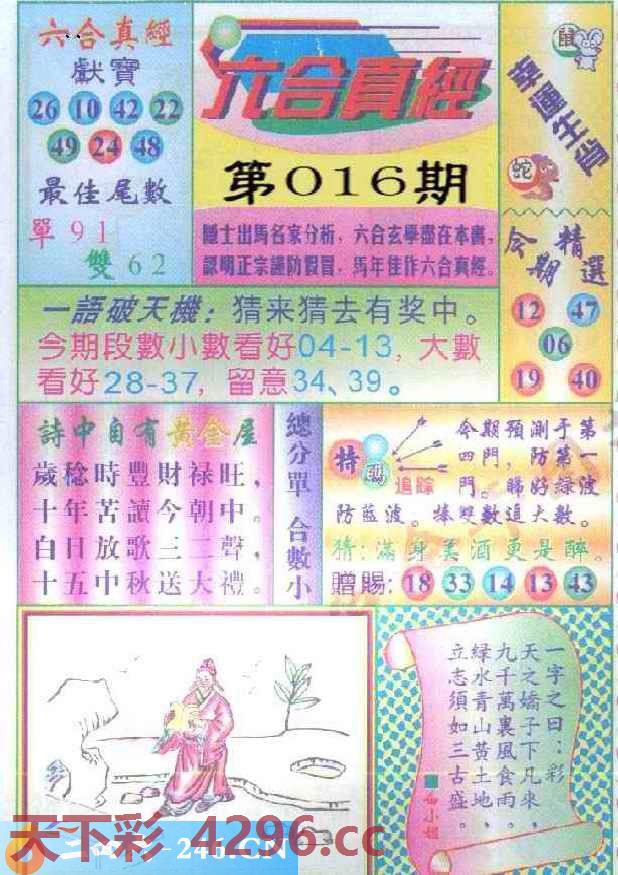 六合真經
獻寶
26 10 42 22
49 24 48
最佳尾數
單91
雙62
六合真經
第016期
隱士出馬名家分析，六合玄學盡在本書，
認明正宗謹防假冒，馬年佳作六合真經。
鼠
幸運生肖
蛇
今期精選
12 47
06
19 40
一語破天機：猜来猜去有奖中。
今期段數小數看好04-13，大數
看好28-37，留意34、39。
詩中自有黃金屋
歲稔時豐財禄旺，
十年苦讀今朝中。
白日放歌三二聲，
十五中秋送大禮。
總分單 合數小
特碼
追踪
今期預測于第
四門，防第一
門。睇好綠波
防藍波。捧雙數追大數。
猜：滿身美酒更是醉。
贈賜：18 33 14 13 43
一字之曰：彩
天之嬌子下凡來，
九千萬裏風食雨，
緑水青山黃土地，
立志須如三古盛。
天下彩 4296.cc
246.CN